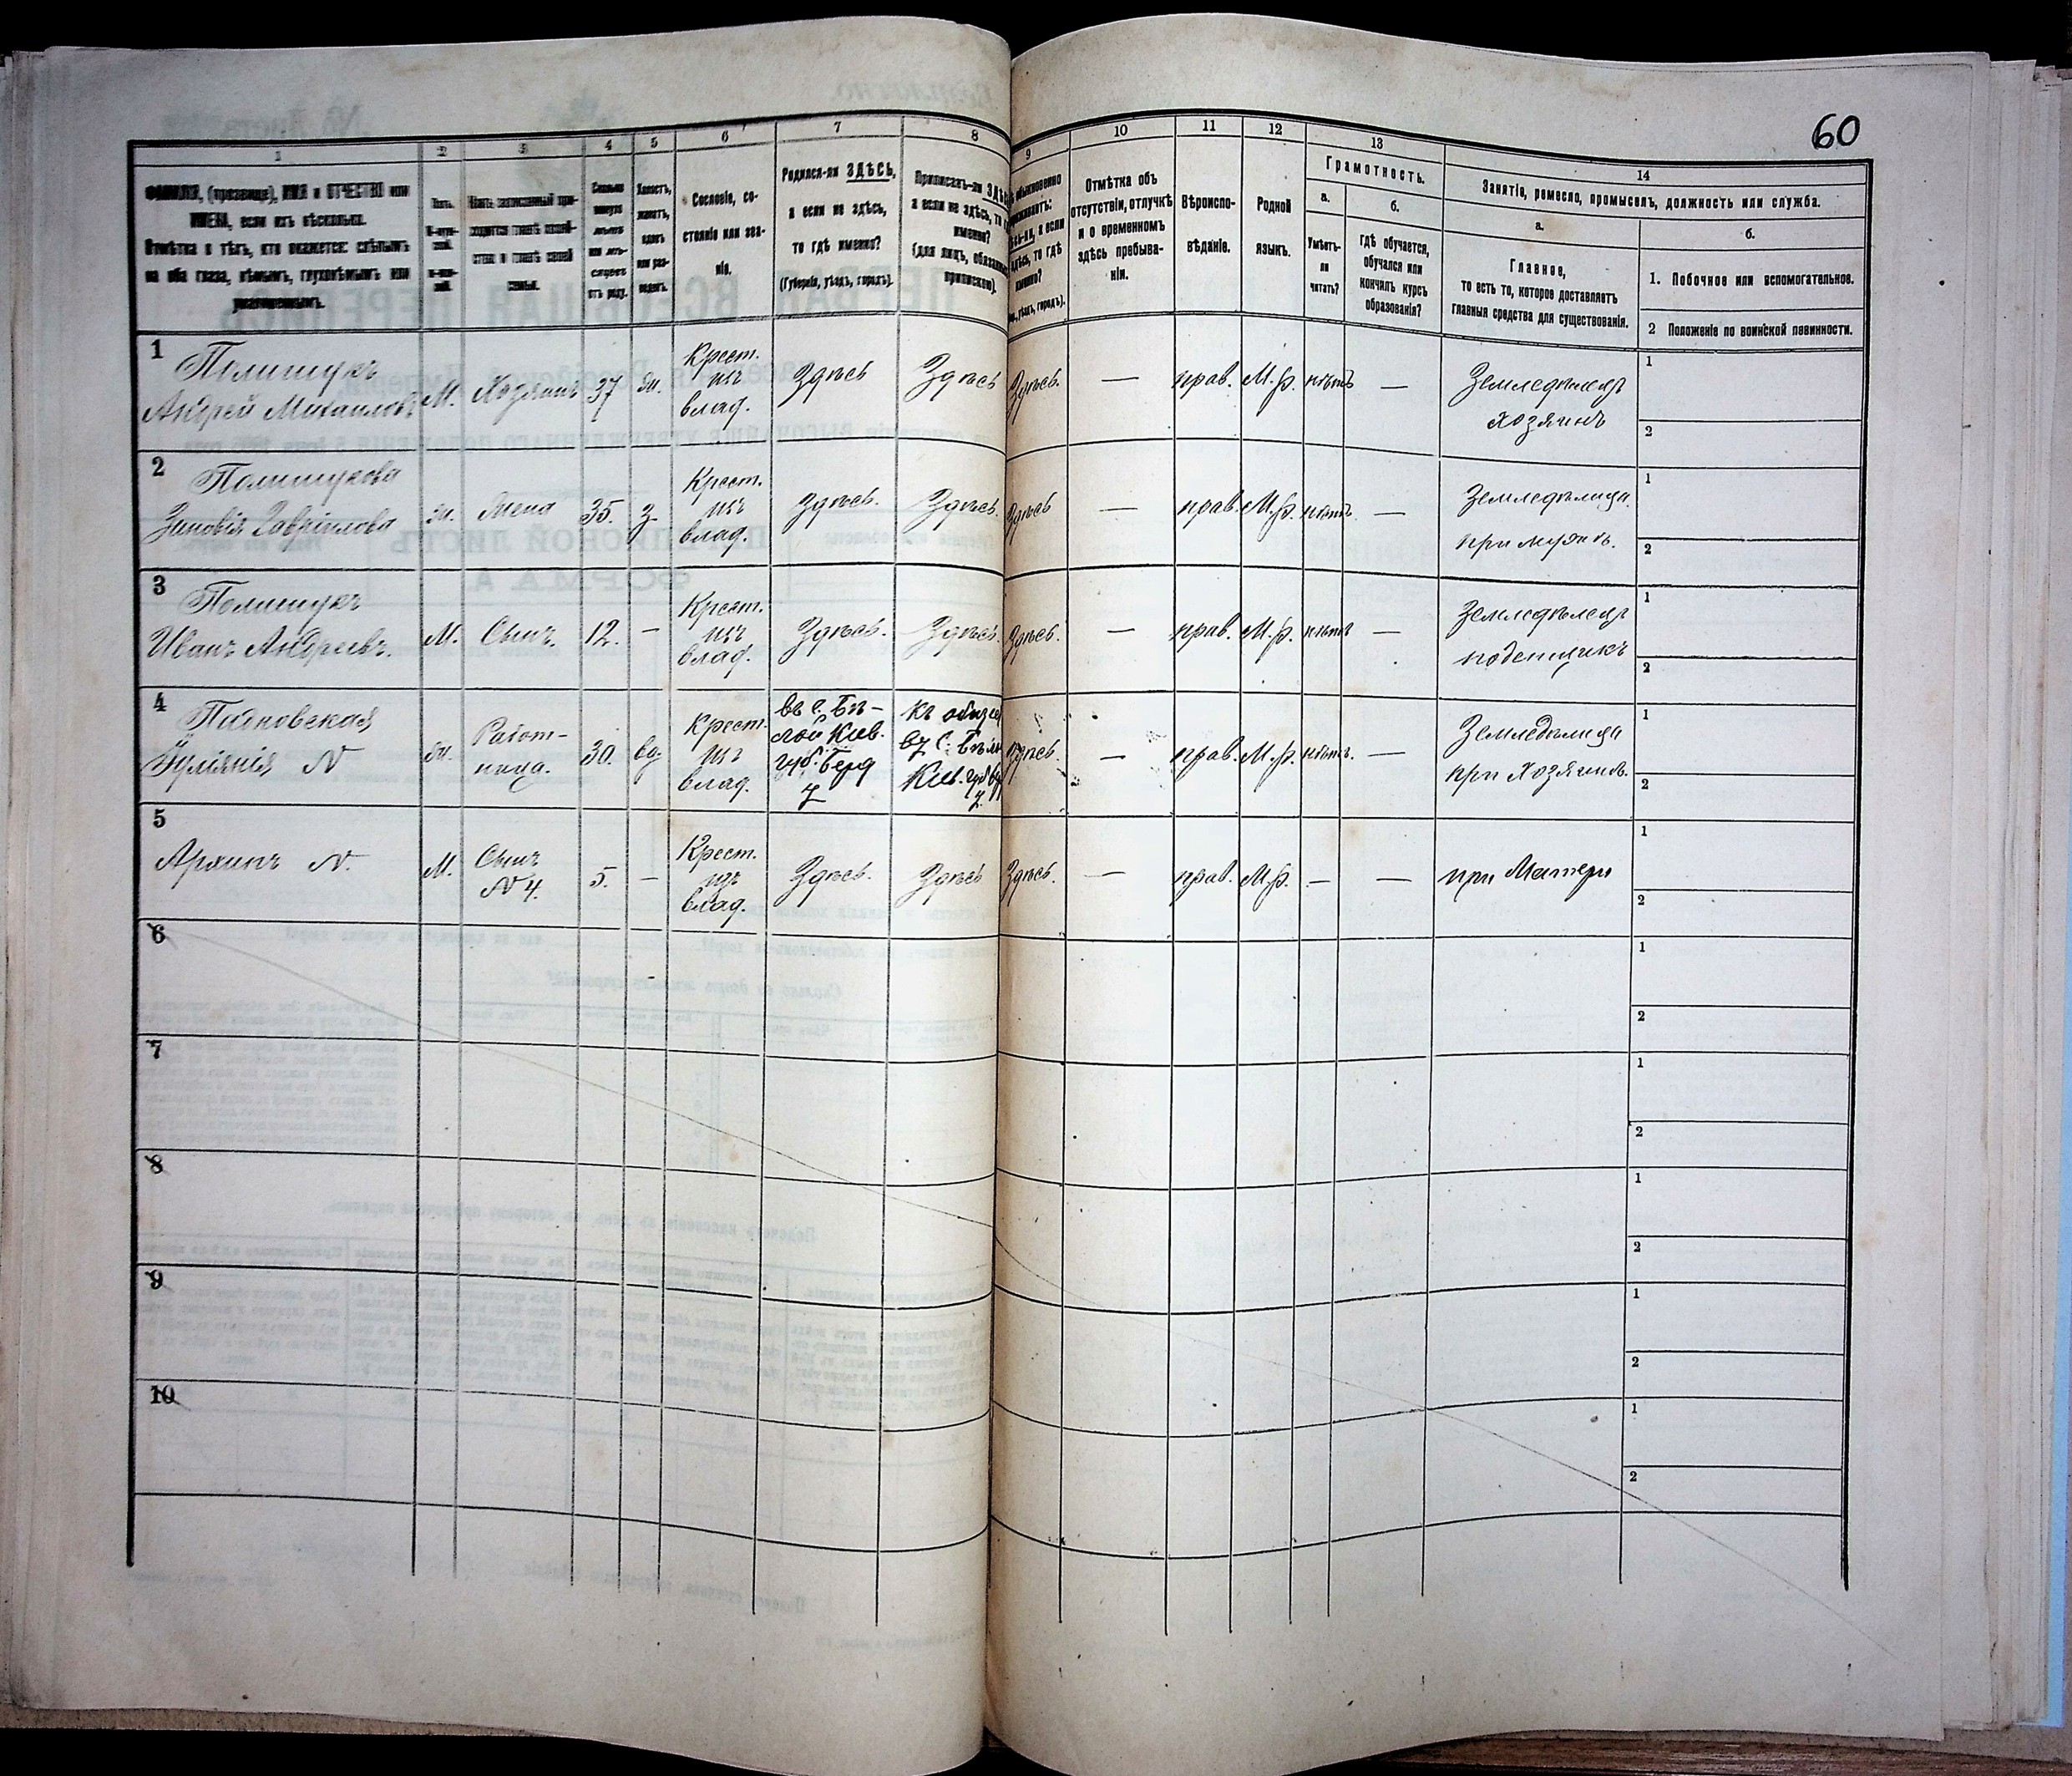 60
1 2 3 4 5 6 7 8 9 10 11 12 13 14
ФАМИЛІЯ, (прозвище), ИМЯ и ОТЧЕСТВО или
ИМЕНА, если ихъ нѣсколько.
Отмѣтка о тѣхъ, кто окажется: слѣпымъ
на оба глаза, нѣмымъ, глухонѣмымъ или
умалишеннымъ.
Полъ.
М-муж-
ской.
Ж-жен-
скій.
Какъ записанный при-
ходится главѣ хозяй-
ства и главѣ своей
семьи.
Сколько
минуло
лѣтъ
или мѣ-
сяцевъ
отъ роду.
Холостъ,
женатъ,
вдовъ
или раз-
веденъ.
Сословіе, со-
стояніе или зва-
ніе.
Родился-ли ЗДѢСЬ,
а если не здѣсь,
то гдѣ именно?
(Губернія, уѣздъ, городъ).
Приписанъ-ли
а если не здѣсь, то
именно?
(для лицъ,
припискою).
обыкновенно
а если
здѣсь, то гдѣ
именно?
уѣздъ, городъ).
Отмѣтка объ
отсутствіи, отлучкѣ
и о временномъ
здѣсь пребыва-
ніи.
Вѣроиспо-
вѣданіе.
Родной
языкъ.
Грамотность.
а.
Умѣетъ-
ли
читать?
б.
гдѣ обучается,
обучался или
кончилъ курсъ
образованія?
Занятіе, ремесло, промыселъ, должность или служба.
а.
Главное,
то есть то, которое доставляетъ
главныя средства для существованія.
б.
1. Побочное или вспомогательное.
2 Положеніе по воинской повинности.
1 Полищукъ
Андрей Михаиловъ
М.
Хозяинъ
37
Крест.
изъ
влад.
Здѣсь
Здѣсь
Здѣсь.
—
прав.
М.р.
нѣтъ
—
Земледѣлецъ
хозяинъ
1
2
2 Полищукова
Зиновія Гавріилова
ж.
Жена
35.
з.
Крест.
изъ
влад.
Здѣсь.
Здѣсь.
Здѣсь
—
прав.
М.р.
нѣтъ.
—
Земледѣлица
при мужѣ.
1
2
3 Полищукъ
Иванъ Андреевъ.
М.
Сынъ.
12.
—
Крест.
изъ
влад.
Здѣсь.
Здѣсь.
Здѣсь.
—
прав.
М.р.
нѣтъ
—
Земледѣлецъ
поденщикъ
1
2
4
N
ж.
Работ-
ница.
30.
вд
Крест.
изъ
влад.
въ с. Бѣ-
лой Кіев.
губ. Берд
У
къ
въ с.
Кіев. губ
у.
Здѣсь.
—
прав.
М.р.
нѣтъ.
—
Земледѣлица
при Хозяинѣ.
1
2
5
Архипъ N.
М.
Сынъ
N 4.
5.
—
Крест.
изъ
влад.
Здѣсь.
Здѣсь
Здѣсь.
—
прав.
М.р.
—
—
при Матери
1
2
6
1
2
7
1
2
8
1
2
9
1
2
10
1
2